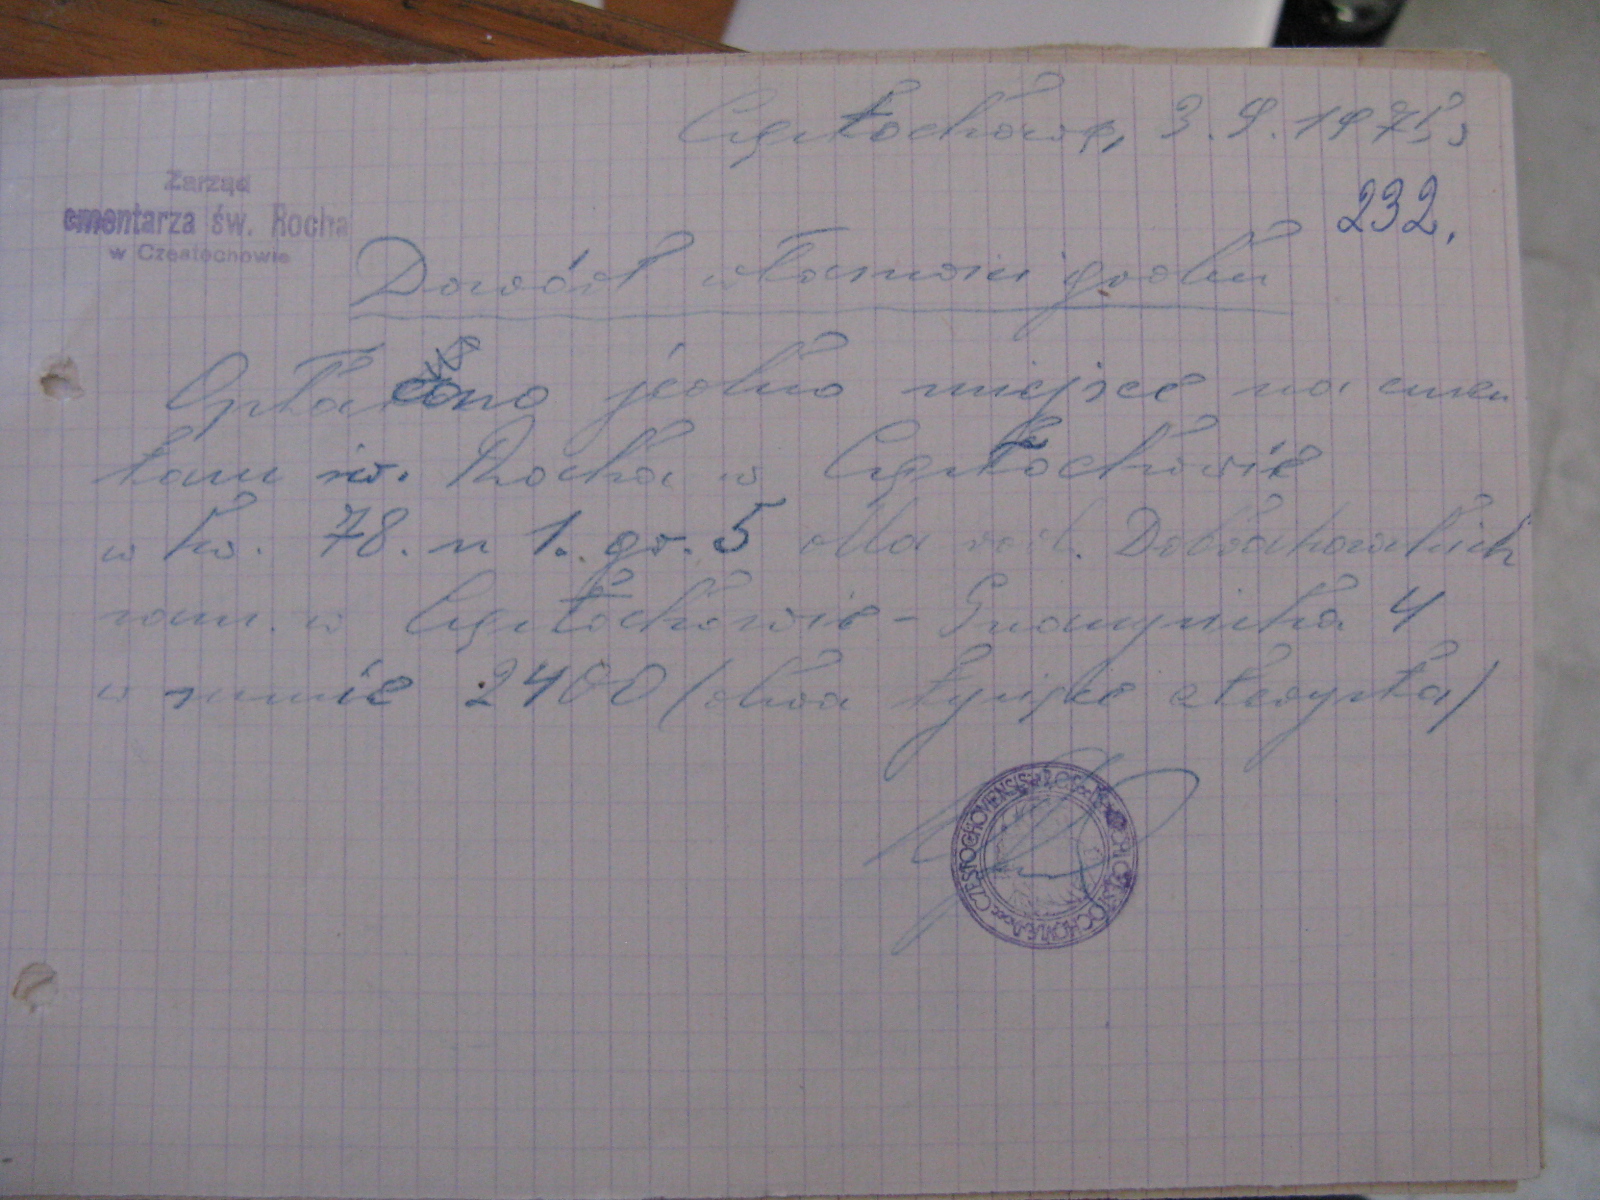 Częstochowa, 3.9.1975
Zarząd
cmentarza św. Rocha
w Częstochowie
232.
Dowód własności grobu
Opłacono jedno miejsce na cmen
tarzu św. Rocha w Częstochowie
w kw. 78. n 1. gr. 5 dla rodz.
zam. w Częstochowie - 4
w sumie 2400 (dwa tysiące czterysta)